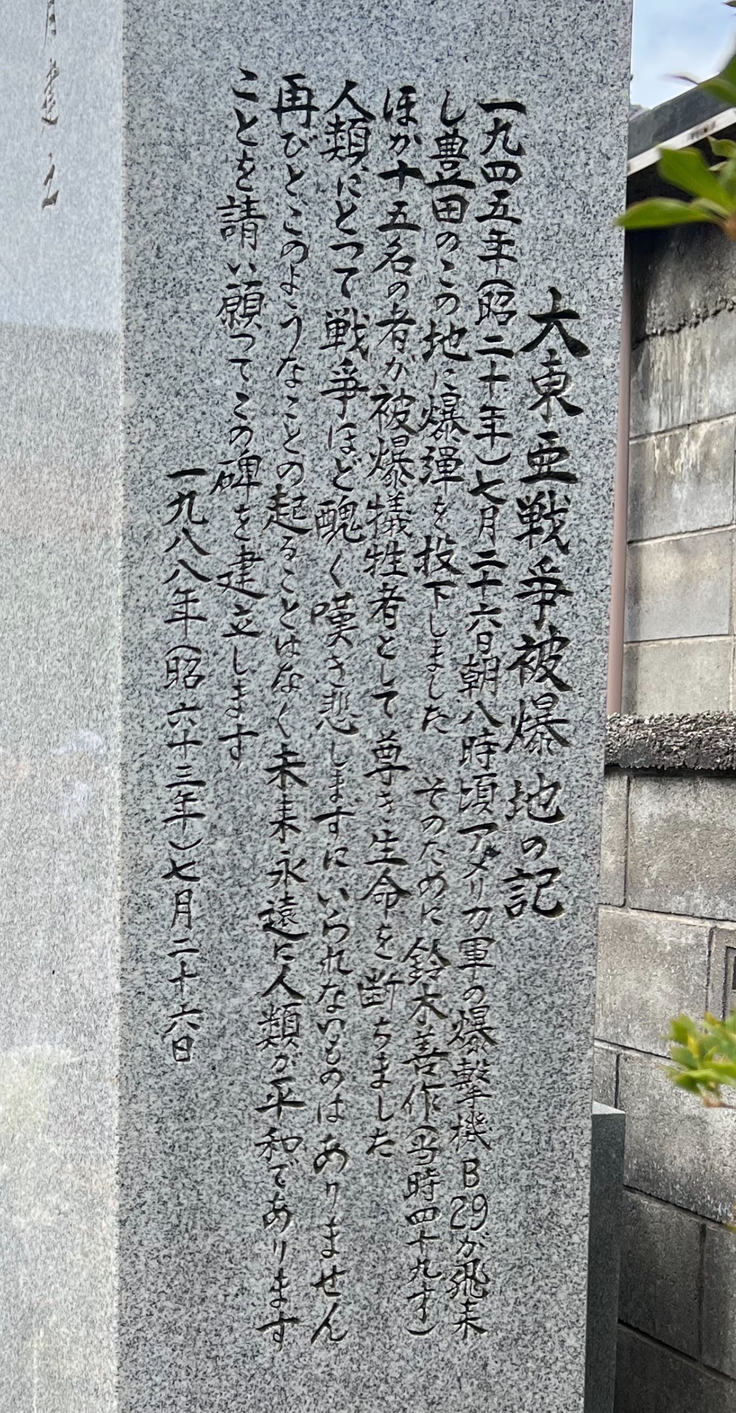 大東亜戦争被爆地の記
一九四五年(昭二十年)七月二十六日朝八時頃アメリカ軍の爆撃機B29が飛来
し豊田のこの地に爆弾を投下しました そのために鈴木善作(当時四十九才)
ほか十五名の者が被爆犠牲者として尊き生命を断ちました
人類にとつて戦争ほど醜く嘆き悲しまずにいられないものはありません
再びとこのようなことの起ることはなく未来永遠に人類が平和であります
ことを請い願つてこの碑を建立します
一九八八年(昭六十三年)七月二十六日
月建立